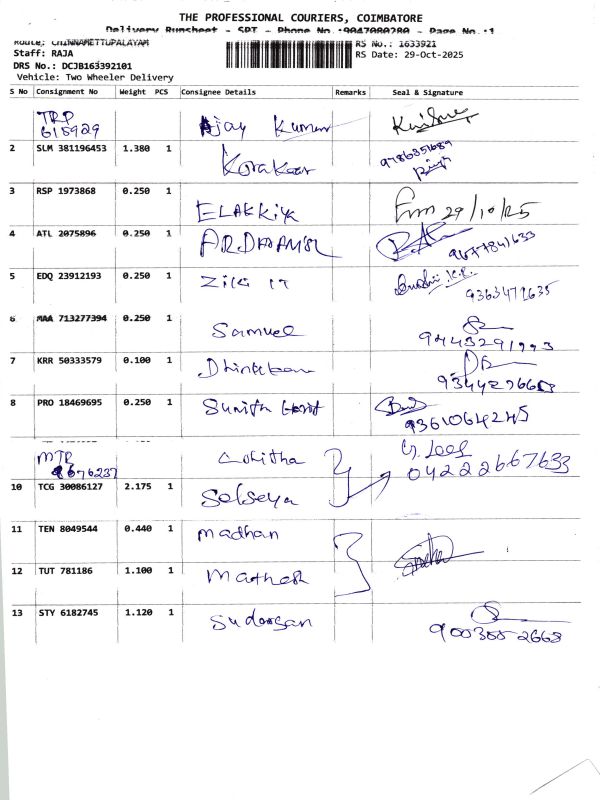 THE PROFESSIONAL COURIERS, COIMBATORE
Delivery Runsheet - SPT - Phone No.:9047080280 - Page No.:1
Route: CHINNAMETTUPALAYAM
RS No.: 1633921
Staff: RAJA
RS Date: 29-Oct-2025
DRS No.: DCJB163392101
Vehicle: Two Wheeler Delivery
S No Consignment No Weight PCS Consignee Details Remarks Seal & Signature
TRP 615929 Ajay Kumar
2 SLM 381196453 1.380 1 9786351689
3 RSP 1973868 0.250 1 ELAKKIYA 29/10/25
4 ATL 2075896 0.250 1 9677841633
5 EDQ 23912193 0.250 1 9363471635
6 MAA 713277394 0.250 1 Samuel 9443291993
7 KRR 50333579 0.100 1
8 PRO 18469695 0.250 1 Sunitha 9361064245
MTR
04222667633
10 TCG 30086127 2.175 1 Selseya
11 TEN 8049544 0.440 1 madhan
12 TUT 781186 1.100 1 Mathesh
13 STY 6182745 1.120 1 Sudarsan